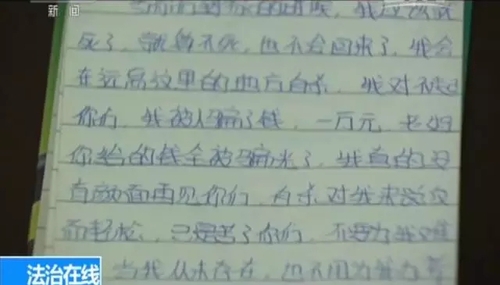 新闻
当你们看到你的时候，我应该
死了，就算不死，也不会回来了，我会
在远离这里的地方自杀，我对不起
你们，我被人骗了钱，一万元，老妈
你给的钱全被骗光了，我真的没
有颜面再见你们，自杀对我来说反
而轻松，只是苦了你们，不要为我难
当我从未存在，也不用为
法治在线